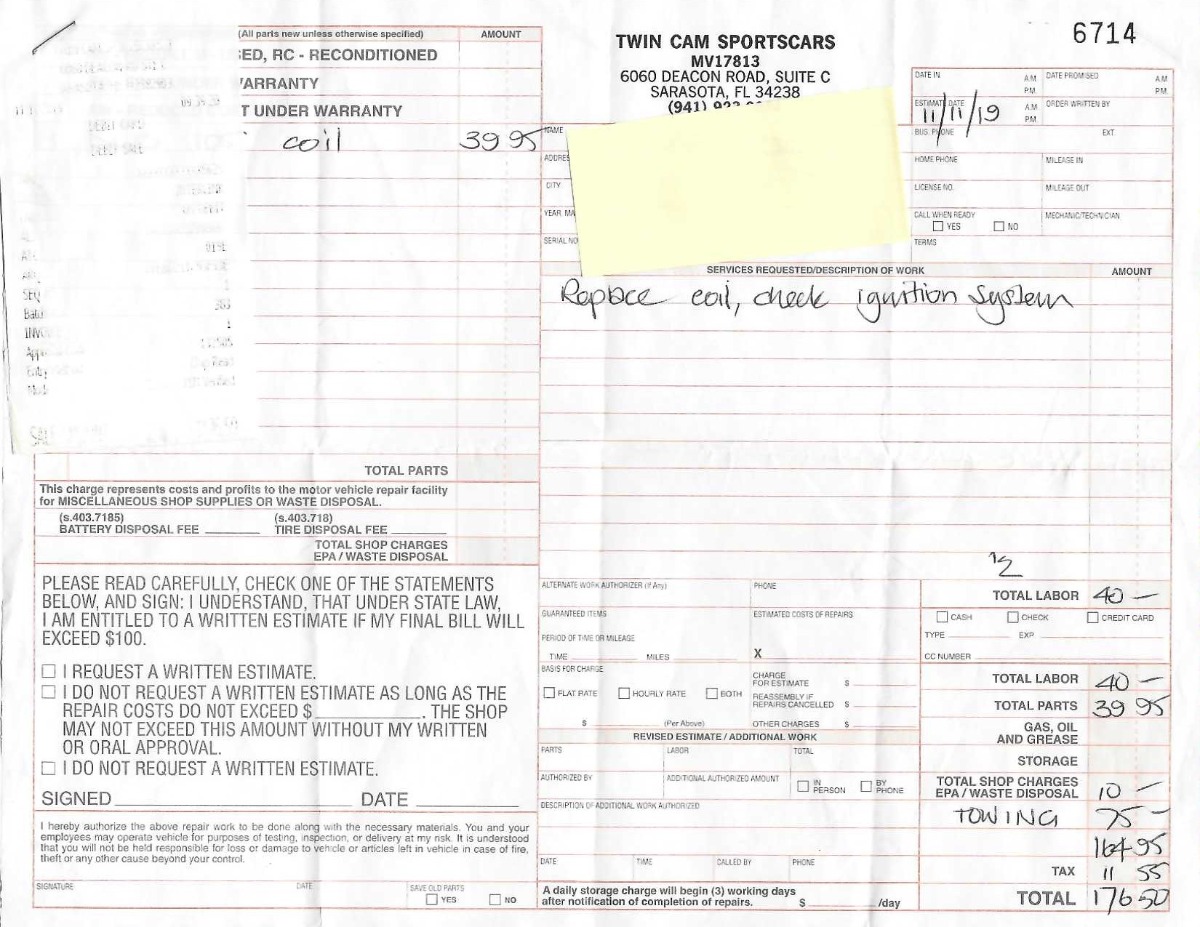 6714
(All parts new unless otherwise specified)
AMOUNT
ED, RC - RECONDITIONED
ARRANTY
T UNDER WARRANTY
coil 39 95
DEBIT SALE
0191
SEQ
203
1
INVO
TOTAL PARTS
This charge represents costs and profits to the motor vehicle repair facility
for MISCELLANEOUS SHOP SUPPLIES OR WASTE DISPOSAL.
(s.403.7185) (s.403.718)
BATTERY DISPOSAL FEE TIRE DISPOSAL FEE
TOTAL SHOP CHARGES
EPA / WASTE DISPOSAL
PLEASE READ CAREFULLY, CHECK ONE OF THE STATEMENTS
BELOW, AND SIGN: I UNDERSTAND, THAT UNDER STATE LAW,
I AM ENTITLED TO A WRITTEN ESTIMATE IF MY FINAL BILL WILL
EXCEED $100.
I REQUEST A WRITTEN ESTIMATE.
I DO NOT REQUEST A WRITTEN ESTIMATE AS LONG AS THE
REPAIR COSTS DO NOT EXCEED $ . THE SHOP
MAY NOT EXCEED THIS AMOUNT WITHOUT MY WRITTEN
OR ORAL APPROVAL.
I DO NOT REQUEST A WRITTEN ESTIMATE.
SIGNED DATE
I hereby authorize the above repair work to be done along with the necessary materials. You and your
employees may operate vehicle for purposes of testing, inspection, or delivery at my risk. It is understood
that you will not be held responsible for loss or damage to vehicle or articles left in vehicle in case of fire,
theft or any other cause beyond your control.
SIGNATURE DATE SAVE OLD PARTS
YES NO
TWIN CAM SPORTSCARS
MV17813
6060 DEACON ROAD, SUITE C
SARASOTA, FL 34238
(941)
DATE IN A.M. P.M. DATE PROMISED A.M. P.M.
ESTIMATE DATE A.M. P.M. ORDER WRITTEN BY
11/11/19
BUS. PHONE EXT.
NAME
ADDRE
HOME PHONE MILEAGE IN
CITY
LICENSE NO. MILEAGE OUT
YEAR MA
CALL WHEN READY MECHANIC/TECHNICIAN
YES NO
SERIAL NO
TERMS
SERVICES REQUESTED/DESCRIPTION OF WORK AMOUNT
Replace coil, check ignition system
1/2
ALTERNATE WORK AUTHORIZER (If Any) PHONE
GUARANTEED ITEMS ESTIMATED COSTS OF REPAIRS
PERIOD OF TIME OR MILEAGE
TIME MILES X
BASIS FOR CHARGE
FLAT RATE HOURLY RATE BOTH
$ (Per Above)
CHARGE
FOR ESTIMATE $
REASSEMBLY IF
REPAIRS CANCELLED $
OTHER CHARGES $
REVISED ESTIMATE / ADDITIONAL WORK
PARTS LABOR TOTAL
AUTHORIZED BY ADDITIONAL AUTHORIZED AMOUNT IN PERSON BY PHONE
DESCRIPTION OF ADDITIONAL WORK AUTHORIZED
DATE TIME CALLED BY PHONE
A daily storage charge will begin (3) working days
after notification of completion of repairs. $ /day
TOTAL LABOR 40 —
CASH CHECK CREDIT CARD
TYPE EXP.
CC NUMBER
TOTAL LABOR 40 —
TOTAL PARTS 39 95
GAS, OIL
AND GREASE
STORAGE
TOTAL SHOP CHARGES
EPA / WASTE DISPOSAL 10 —
TOWING 75 —
164 95
TAX 11 55
TOTAL 176 50